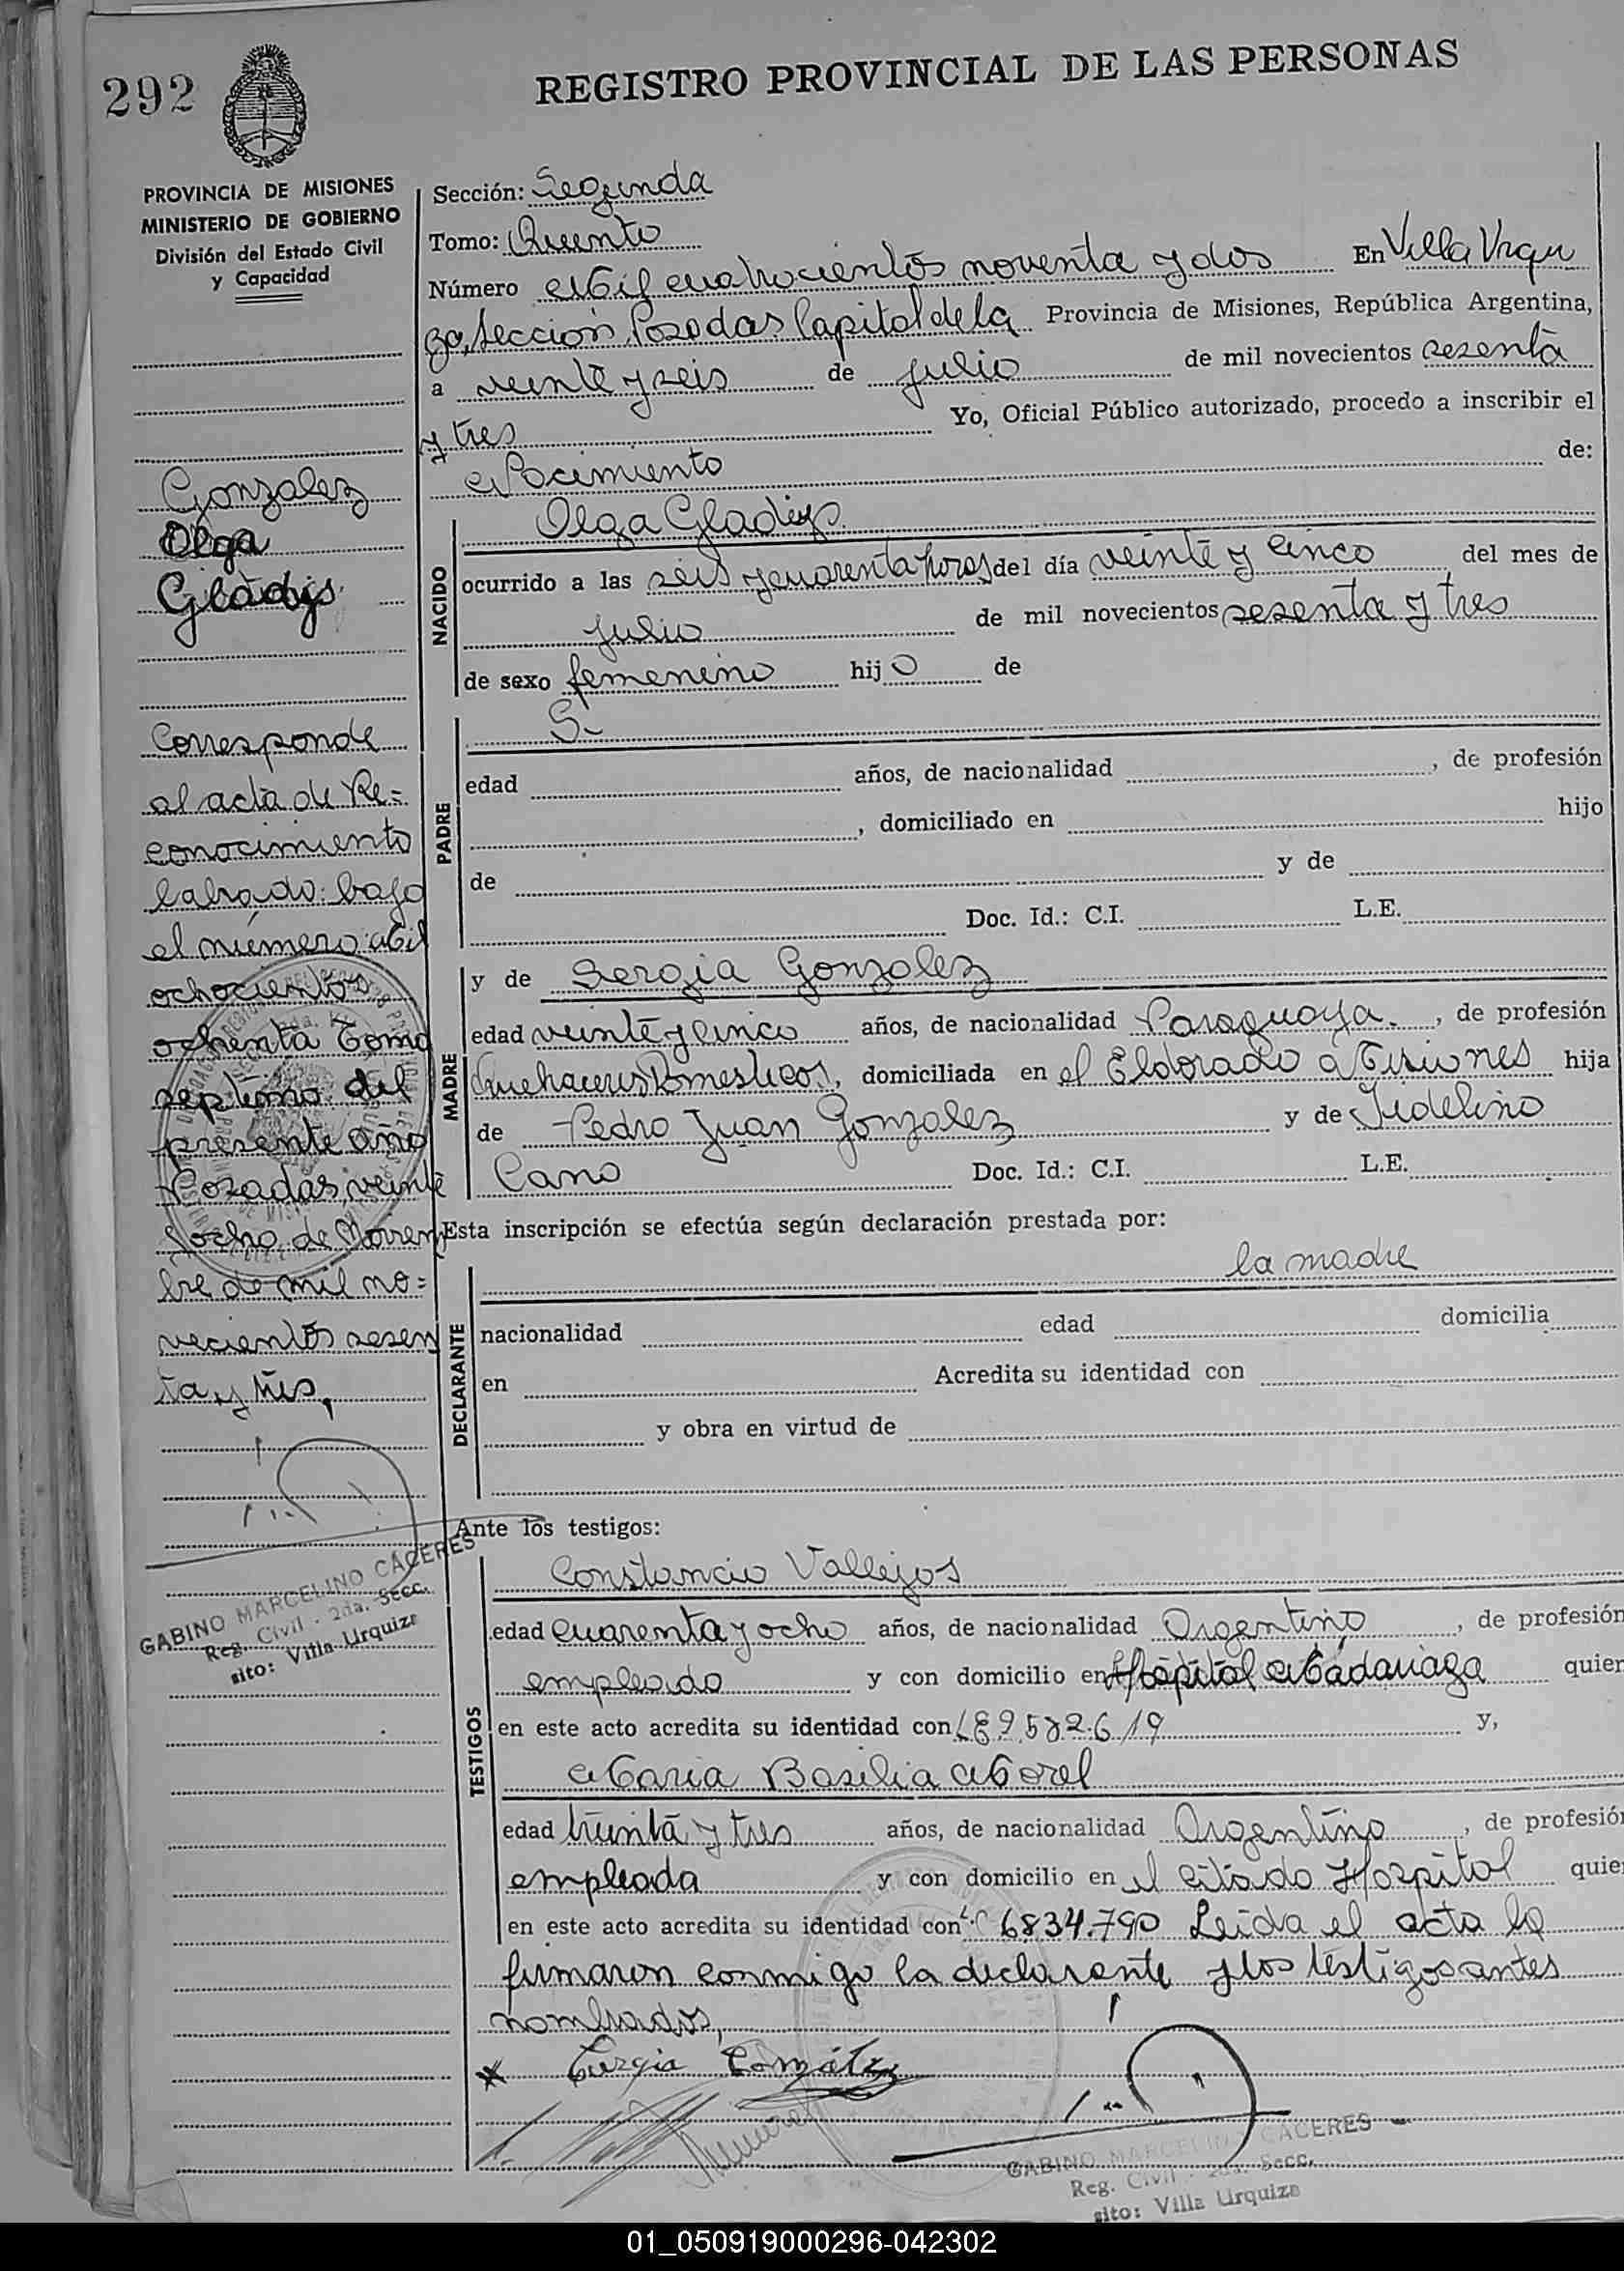 292
REGISTRO PROVINCIAL DE LAS PERSONAS
PROVINCIA DE MISIONES
MINISTERIO DE GOBIERNO
División del Estado Civil
y Capacidad
Gonzalez
Olga
Gladys
Corresponde
al acta de Re=
conocimiento
labrado bajo
el número Mil
ochocientos
ochenta Tomo
septimo del
presente año
Posadas veinte
y ocho de Noviem
bre de mil no=
vecientos sesen
ta y tres,
GABINO MARCELINO CACERES
Reg. Civil - 2da. Secc.
sito: Villa Urquiza
Sección: Segunda
Tomo: Quinto
Número Mil cuatrocientos noventa y dos En Villa Urqui
za, Sección Posadas Capital de la Provincia de Misiones, República Argentina,
a veinte y seis de julio de mil novecientos sesenta
y tres Yo, Oficial Público autorizado, procedo a inscribir el
Nacimiento de:
NACIDO
Olga Gladys
ocurrido a las seis y cuarenta horas del día veinte y cinco del mes de
julio de mil novecientos sesenta y tres
de sexo femenino hij o de
PADRE
S.
edad años, de nacionalidad , de profesión
, domiciliado en hijo
de y de
Doc. Id.: C.I. L.E.
MADRE
y de Sergia Gonzalez
edad veinte y cinco años, de nacionalidad Paraguaya , de profesión
Quehaceres Domesticos, domiciliada en el Eldorado Misiones hija
de Pedro Juan Gonzalez y de Fidelina
Cano Doc. Id.: C.I. L.E.
Esta inscripción se efectúa según declaración prestada por:
DECLARANTE
la madre
nacionalidad edad domicilia
en Acredita su identidad con
y obra en virtud de
Ante los testigos:
TESTIGOS
Constancio Vallejos
edad cuarenta y ocho años, de nacionalidad Argentino , de profesión
empleado y con domicilio en Hospital Madariaga quien
en este acto acredita su identidad con y,
Maria Basilia Morel
edad treinta y tres años, de nacionalidad Argentino , de profesión
empleada y con domicilio en el citado Hospital quie
en este acto acredita su identidad con L.C 6834.790 Leida el acta la
firmaron conmigo la declarante y los testigos antes
nombrados,
Sergia Gonzalez
GABINO MARCELINO CACERES
Reg. Civil - 2da. Secc.
sito: Villa Urquiza
01_050919000296-042302